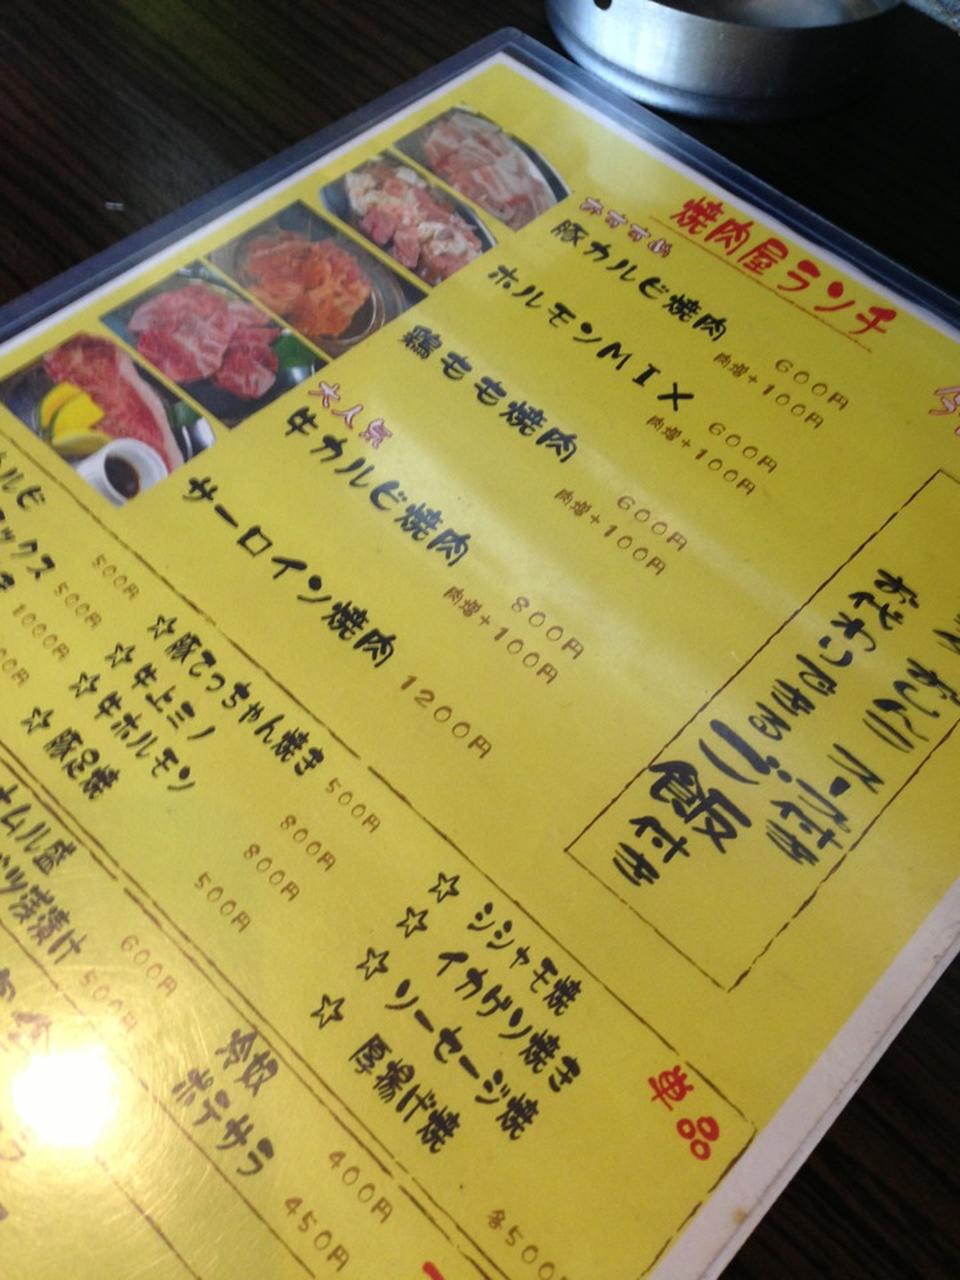 焼肉屋ランチ
おすすめ
豚カルビ焼肉 600円
肉増+100円
ホルモンMIX 600円
肉増+100円
鶏もも焼肉 600円
肉増+100円
大人気
牛カルビ焼肉 800円
肉増+100円
サーロイン焼肉 1200円
スープ付き
おかわりできるご飯付き
単品
☆シシャモ焼
☆イカゲソ焼き
☆ソーセージ焼
☆厚揚げ焼
各500
☆豚てっちゃん焼き 500円
☆牛上ミノ 800円
☆牛ホルモン 800円
☆豚足焼 500円
ルビ 500円
ックス 500円
1000円
冷奴 400円
ポテサラ 450円
ナムル盛 600円
浅漬け 500円